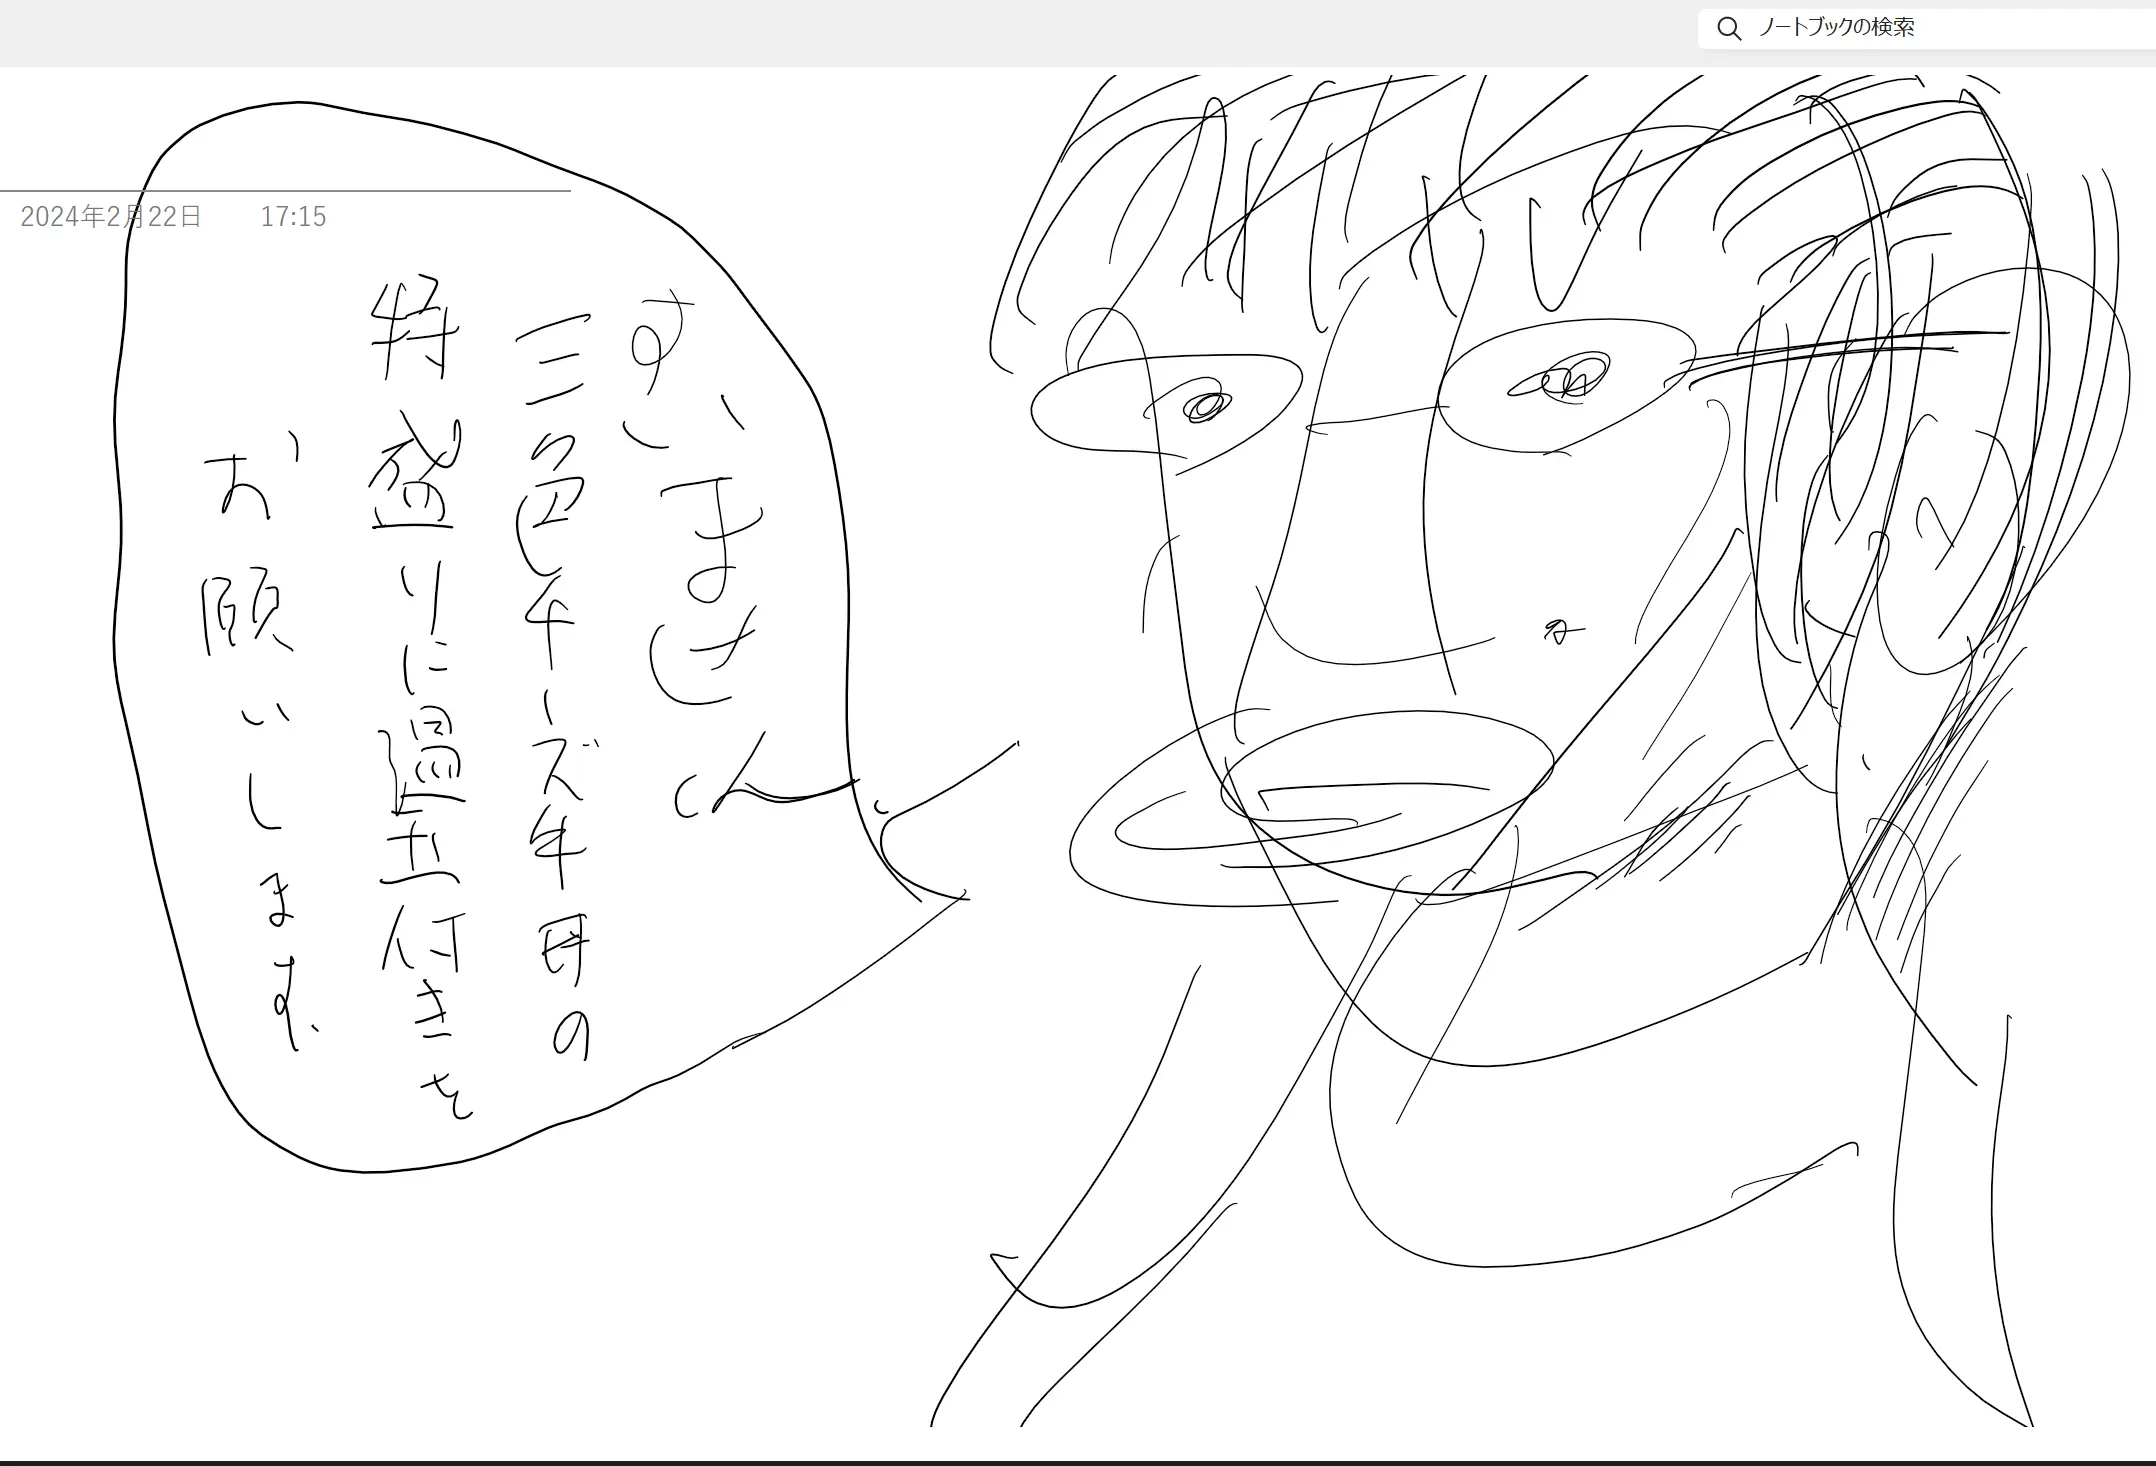 ノートブックの検索
2024年2月22日 17:15
すいませ
ん〜
三色チーズ牛丼の
特盛りに温玉付きを
お願いします